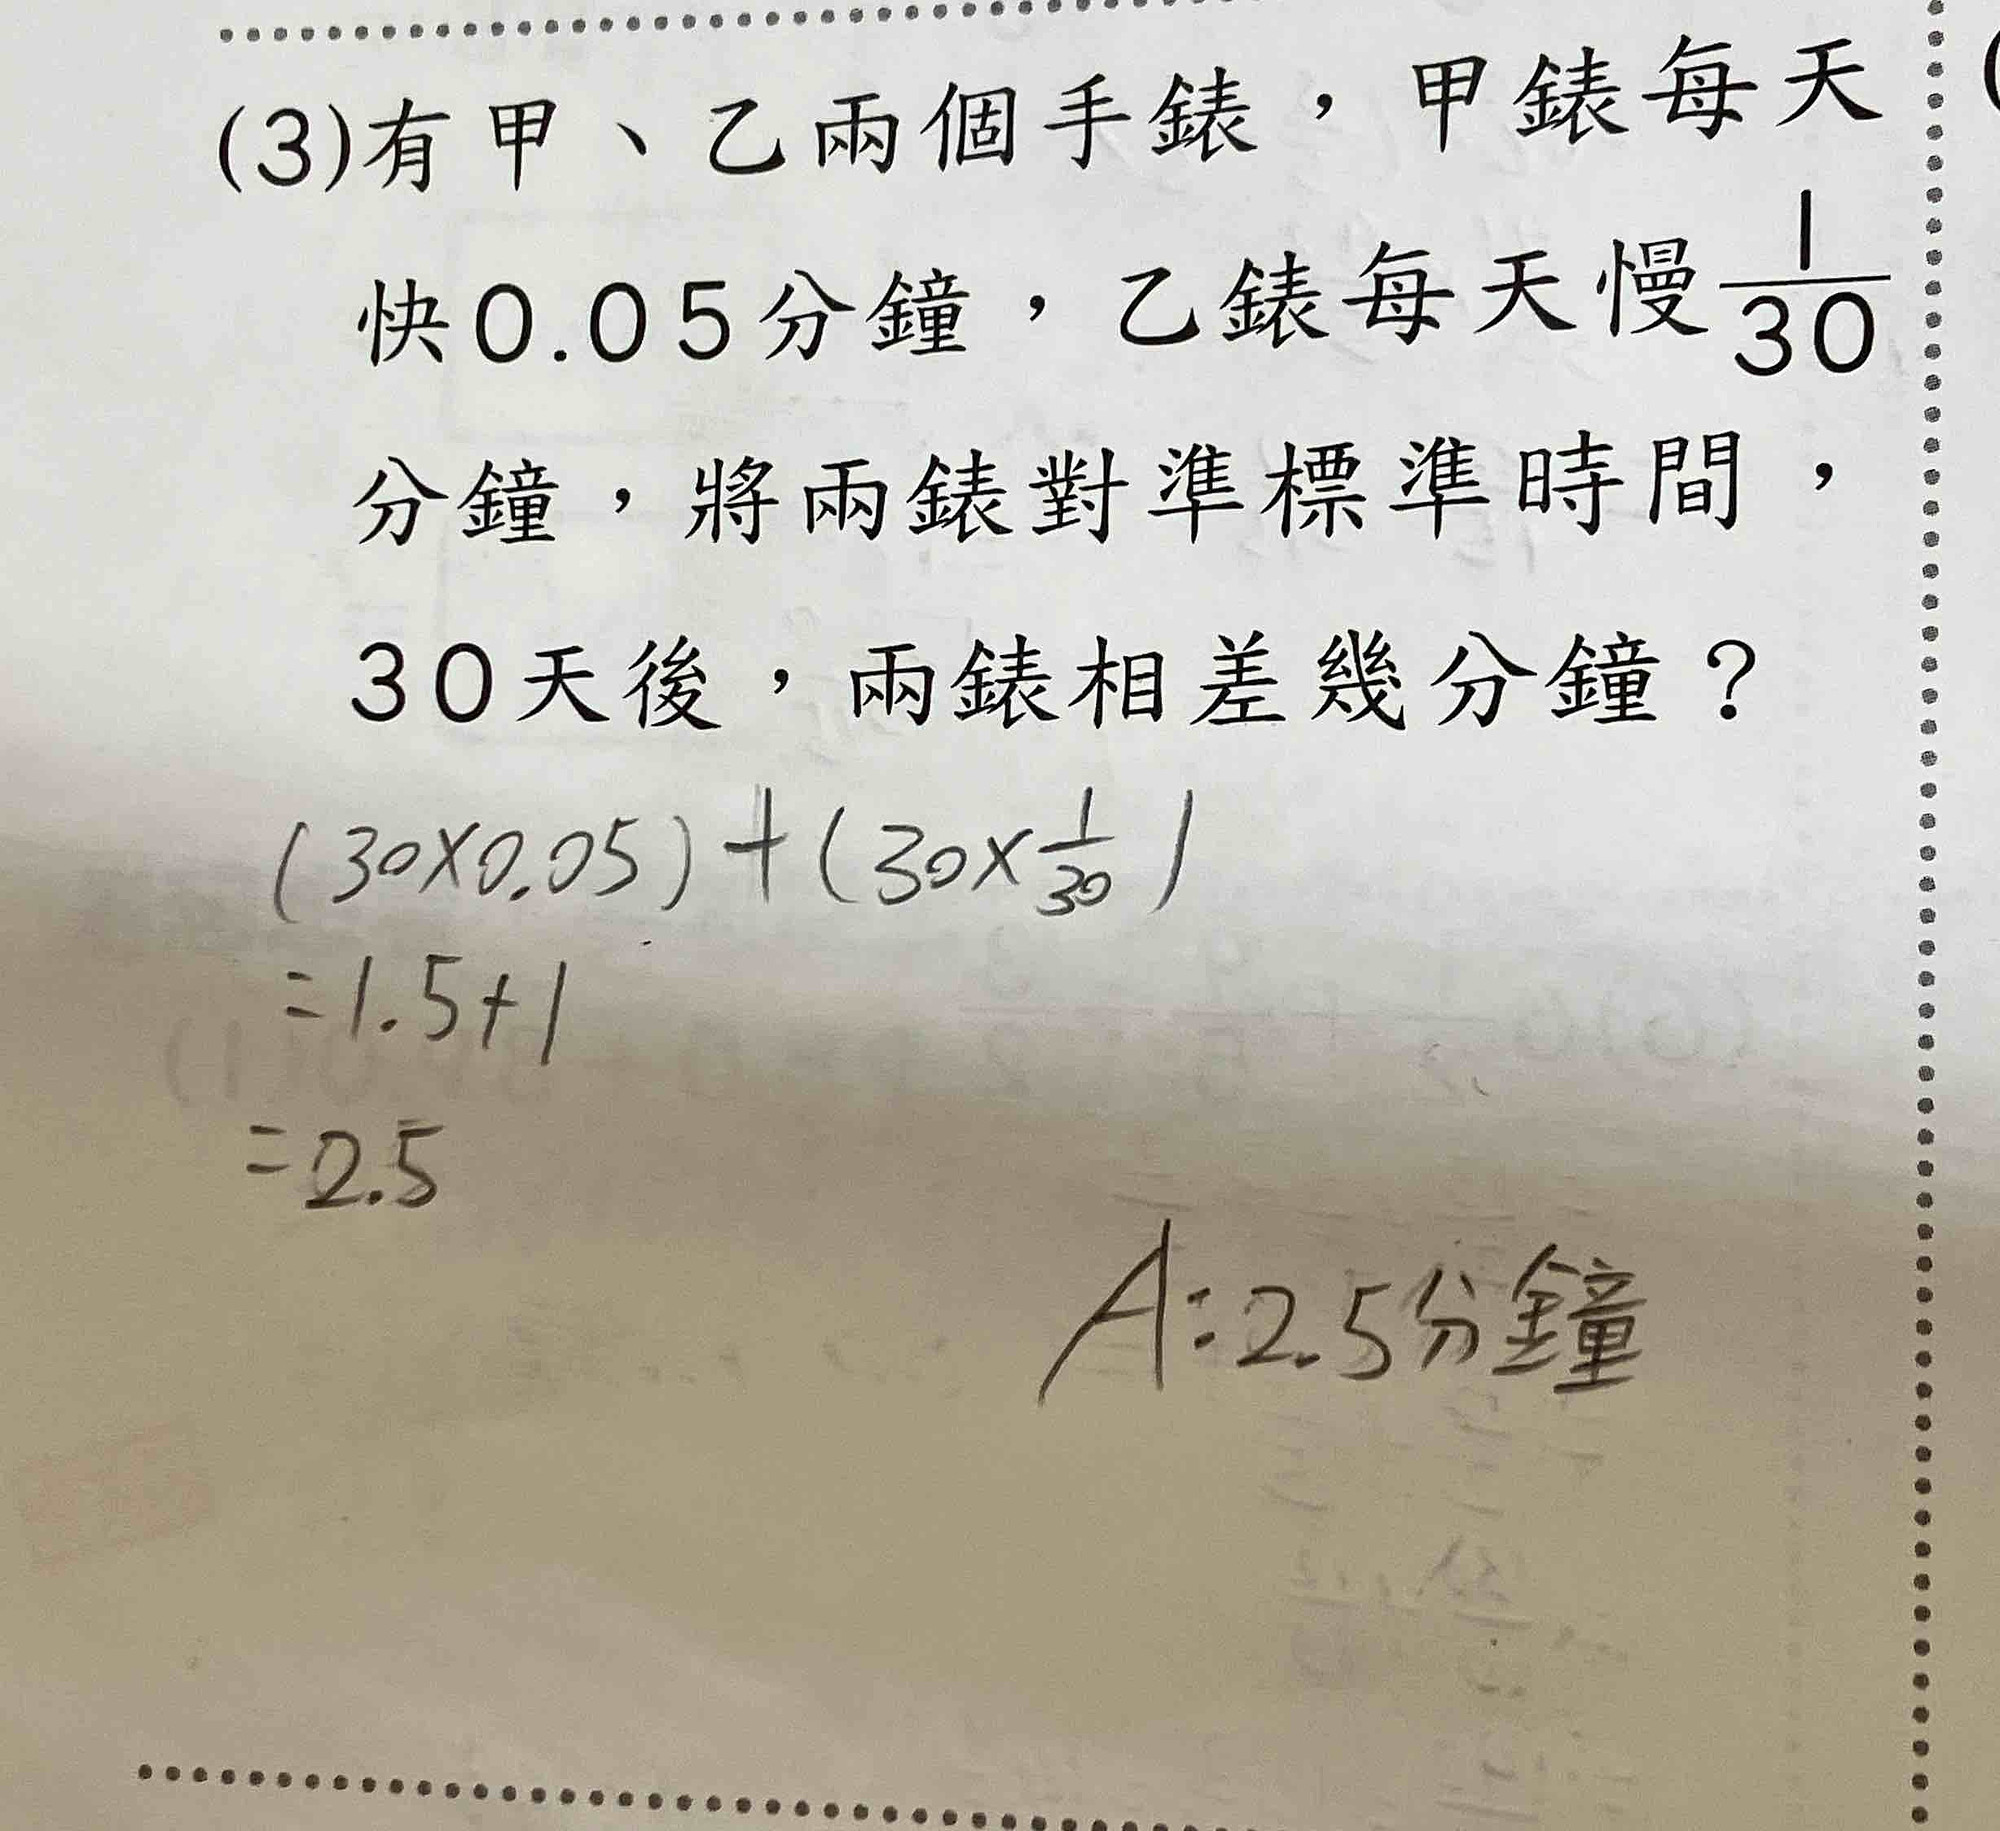 (3)有甲、乙兩個手錶，甲錶每天
快0.05分鐘，乙錶每天慢1/30
分鐘，將兩錶對準標準時間，
30天後，兩錶相差幾分鐘？
(30×0.05)+(30×1/30)
=1.5+1
=2.5
A:2.5分鐘